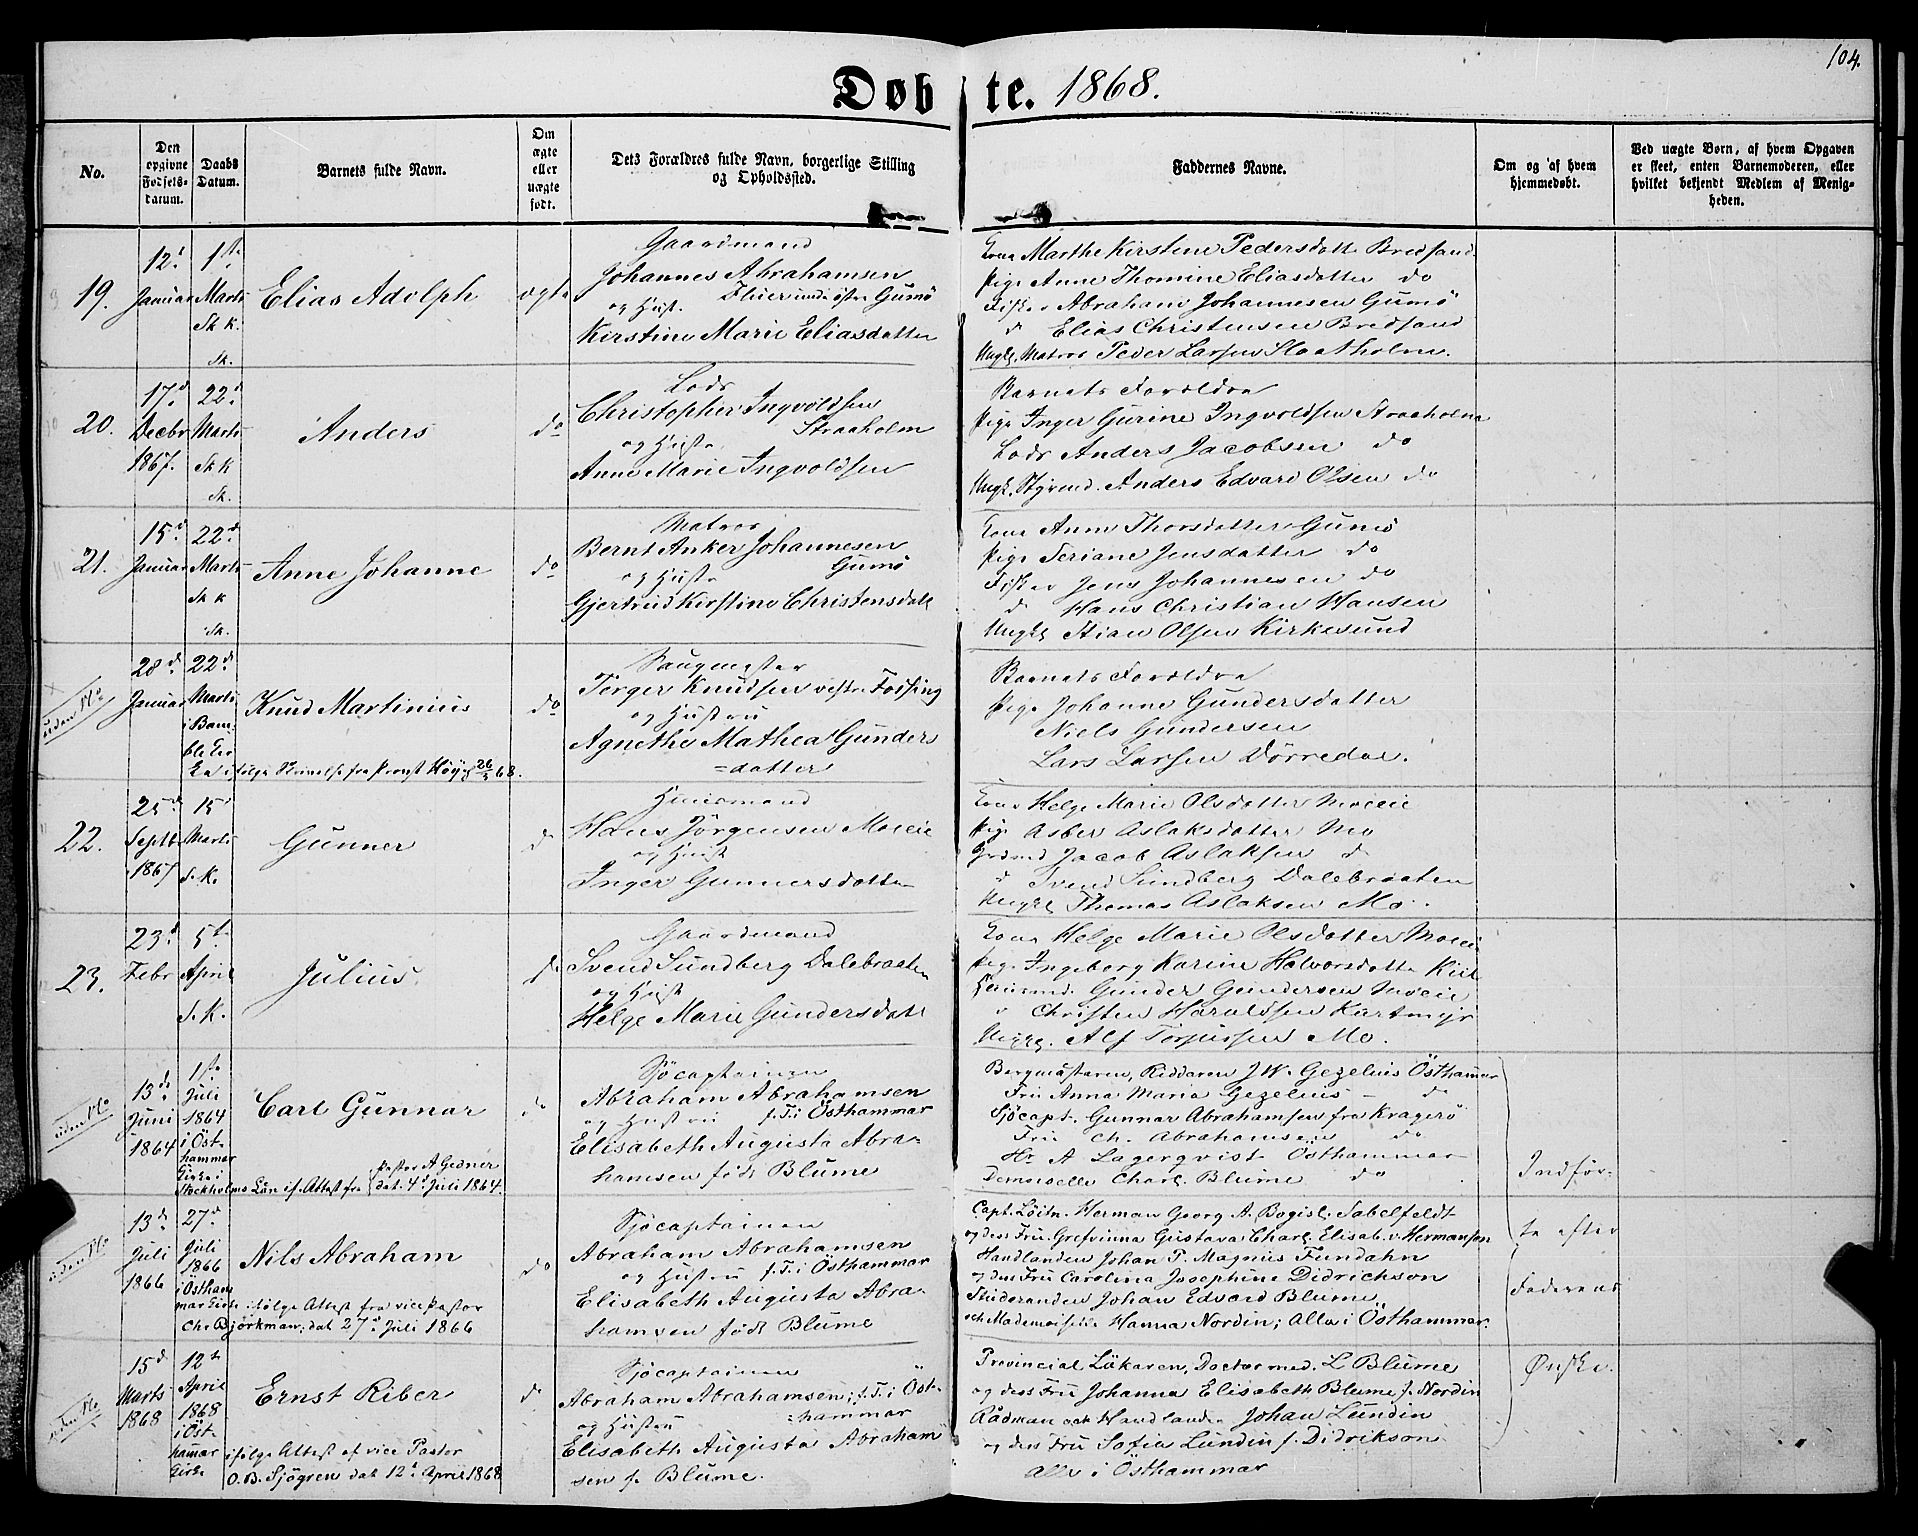 104.
Døbte. 1868.
No.
Den opgivne Fødselsdatum.
Daabs Datum.
Barnets fulde Navn.
Om ægte eller uægte født.
Dets Forældres fulde Navn, borgerlige Stilling og Opholdssted.
Faddernes Navne.
Om og af hvem hjemmedøbt.
Ved uægte Børn, af hvem Opgaven er skeet, enten Barnemoderen, eller hvilket bekjendt Medlem af Menigheden.
19.
12t Januar
1ste Marts Sk k. Sk.
Elias Adolph
ægte
Gaardmand
Johannes Abrahamsen
og Hust.
Kirstine Marie Eliasdatter
Kone Marthe Kirstine Pedersdatte Bredsand
Pige Anne Thomine Eliasdatter do
Fisker Abraham Johannesen Gumö
d Elias Christensen Bredsand
Ungk. Matros Peder Larsen Slaatholm.
20.
17d Decbr 1867.
22d Marts Sk k Sk.
Anders
do
Lods
Christopher Ingvoldsen
Straaholm
og Hustr
Anne Marie Ingvoldsen
Barnets Forældre
Pige Inger Gurine Ingvoldsen Straaholm
Lods Anders Jacobsen do
Ungk. Styrmd. Anders Edvard Olsen do
21.
15d Januar
22d Marts Sk k Sk.
Anne Johanne
do
Matros
Bernt Anker Johannesen
Gumö
og Hustr
Gjertrud Kirstine Christensdatt
Kone Anne Thorsdatter Gumö
Pige Teriane Jensdatter do
Fisker Jens Johannesen do
d Hans Christian Hansen
Ungk Stian Olsen Kirkesund
uden No
28d Januar
22d Marts i Bamble Kirke ifølge Skrivelse fra Provst Höyg 26/3 68.
Knud Martinius
do
Saugmester
Terger Knudsen vestre Fossing
og Hustru
Agnethe Mathea Gunders
=datter
Barnets Forældre
Pige Johanne Gundersdatter
Niels Gundersen
Lars Larsen Dörredal.
22.
25d Septb 1867
15 Marts S.K.
Gunner
d
Huusmand
Hans Jörgensen Moeie
og Hust
Inger Gunnersdatter
Kone Helge Marie Olsdatter Moeie
Pige Asber Aslaksdatter Mo
Grdmd Jacob Aslaksen d
d Svend Sundberg Dalebraaten
Ungk Thomas Aslaksen Mo.
23.
23d Febr
5te April S.K.
Julius.
d
Gaardmand
Svend Sundberg Dalebraaten
og Hust
Helge Marie Gundersdatt
Kone Helge Marie Olsdatter Moeie
Pige Ingeborg Karine Halvorsdatte Kiil
Huusmd. Gunder Gundersen Moeie
Christen Haraldsen Kurtmyr
Ungk. Alf Torjussen Mo.
uden No
13de Juni 1864
1ste Juli 1864 i Östhammar Kirke i Stockholms Län if. Attest fra Pastor A Gedner dat. 4d Juli 1864.
Carl Gunnar
do
Sjöcaptainen
Abraham Abrahamsen
og Hustru f.T. i Östhammar
Elisabeth Augusta Abra-
hamsen född Blume
Bergmästaren, Riddaren J.W. Gezelius Östhammar
Fru Anna Maria Gezelius - do
Sjöcapt. Gunnar Abrahamsen fra Kragerö
Fru Ch. Abrahamsen do
Hr A Lagerqvist Östhammar
Demoiselle Charl. Blume do
uden No
13de Juli 1866
27d Juli 1866 i Östhammar Kirke ifölge Attest fra vice Pastor Chr Björkman, dat 27d Juli 1866
Nils Abraham
do
Sjöcaptainen
Abraham Abrahamsen
og Hustru f.T. i Östhammar
Elisabeth Augusta Abra-
hamsen född Blume
Capt. Löitn. Herman Georg A. Bogisl. Sabelfeldt
og dess Fru Grefvinna Gustava Charl. Elisab. v. Hermanson
Handlanden Johan P. Magnus Fundahn
og dess Fru Carolina Josephine Didrichson
Studeranden Johan Edvard Blume
och Mademoiselle Hanna Nordin; Alla i Östhammar.
uden No
15d Marts 1868
12te April 1868 i Östhammar Kirke ifölge Attest af vice Pastor O.B. Sjögren dat 12t April 1868
Ernst Riber
d
Sjöcaptainen
Abraham Abrahamsen; f.T. i Öst-
og Hustru =hammar
Elisabeth Augusta Abraham
sen f. Blume.
Provincial Läkaren, Doctor med. L Blume
og dess Fru Johanna Elisabeth Blume f. Nordin
Rådman och Handlanden Johan Lundin
og dess Fru Sofia Lundin f. Didrikson
Alla i Östhammar
Indför-
te efter
Faderens
Ønske.